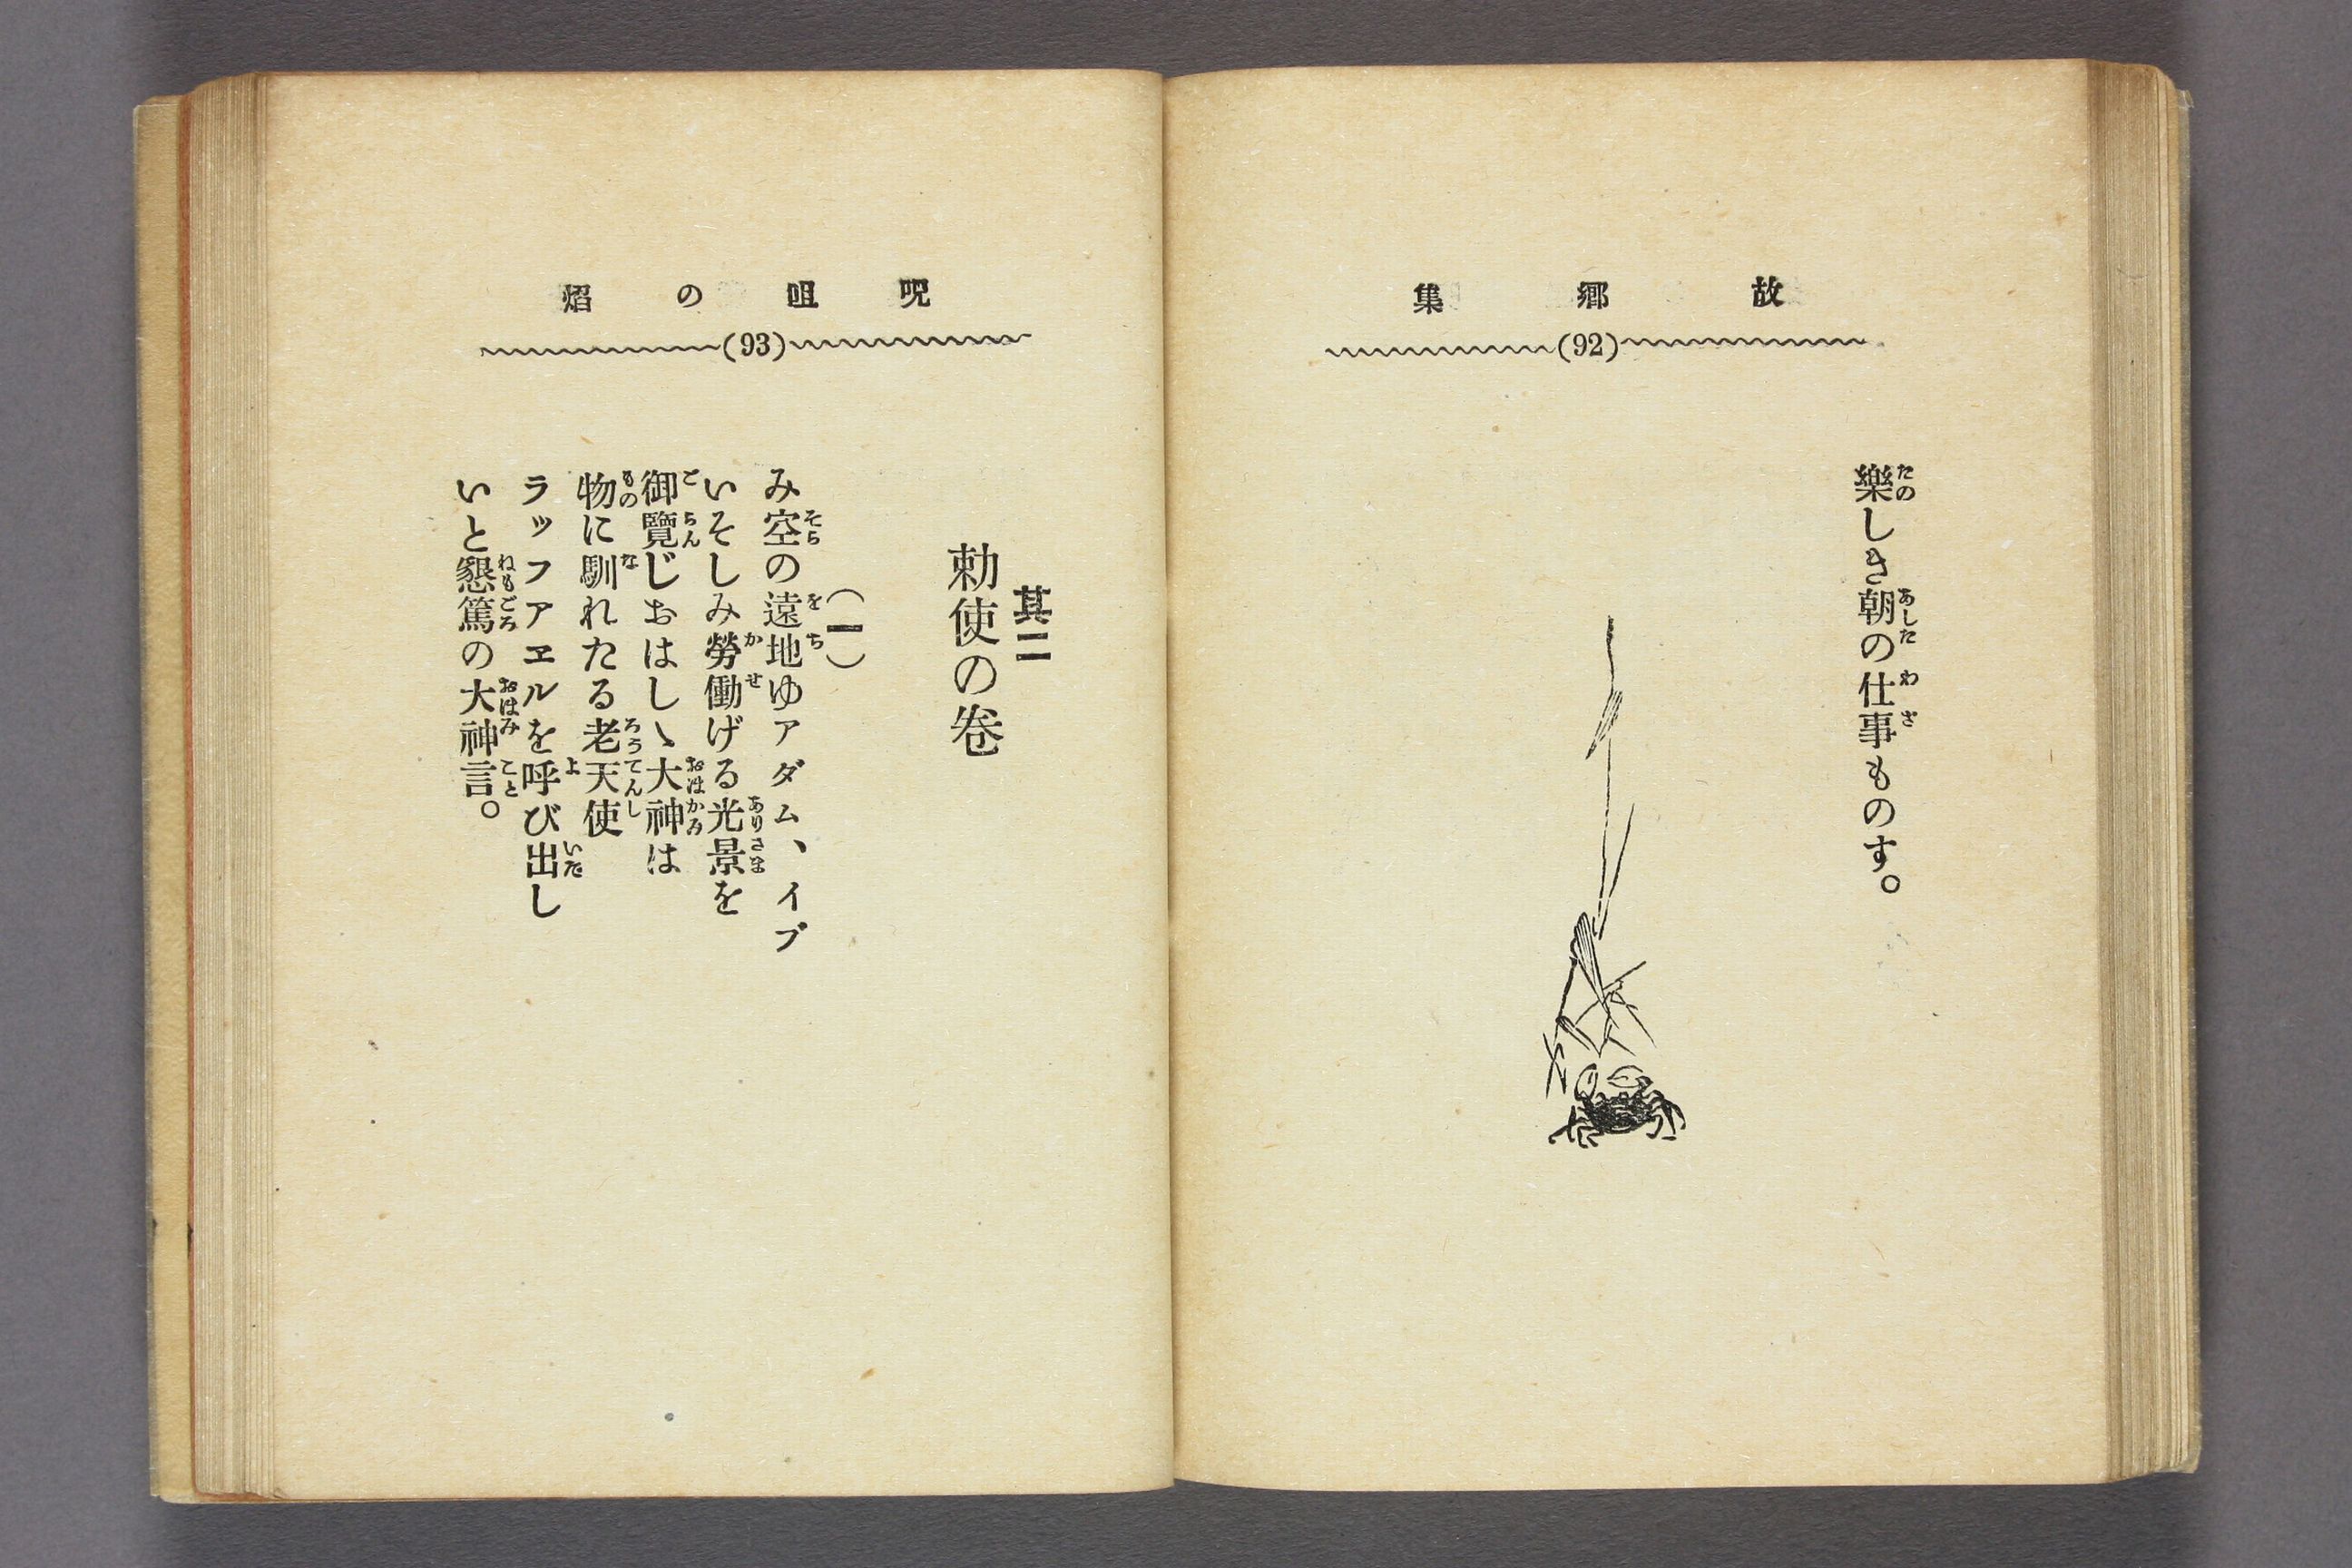 故郷集
(92)
樂しき朝の仕事ものす。
呪咀の焰
(93)
其二
勅使の卷
(一)
み空の遠地ゆアダム、イブ
いそしみ勞働げる光景を
御覽じおはしゝ大神は
物に馴れたる老天使
ラッファエルを呼び出し
いと懇篤の大神言。